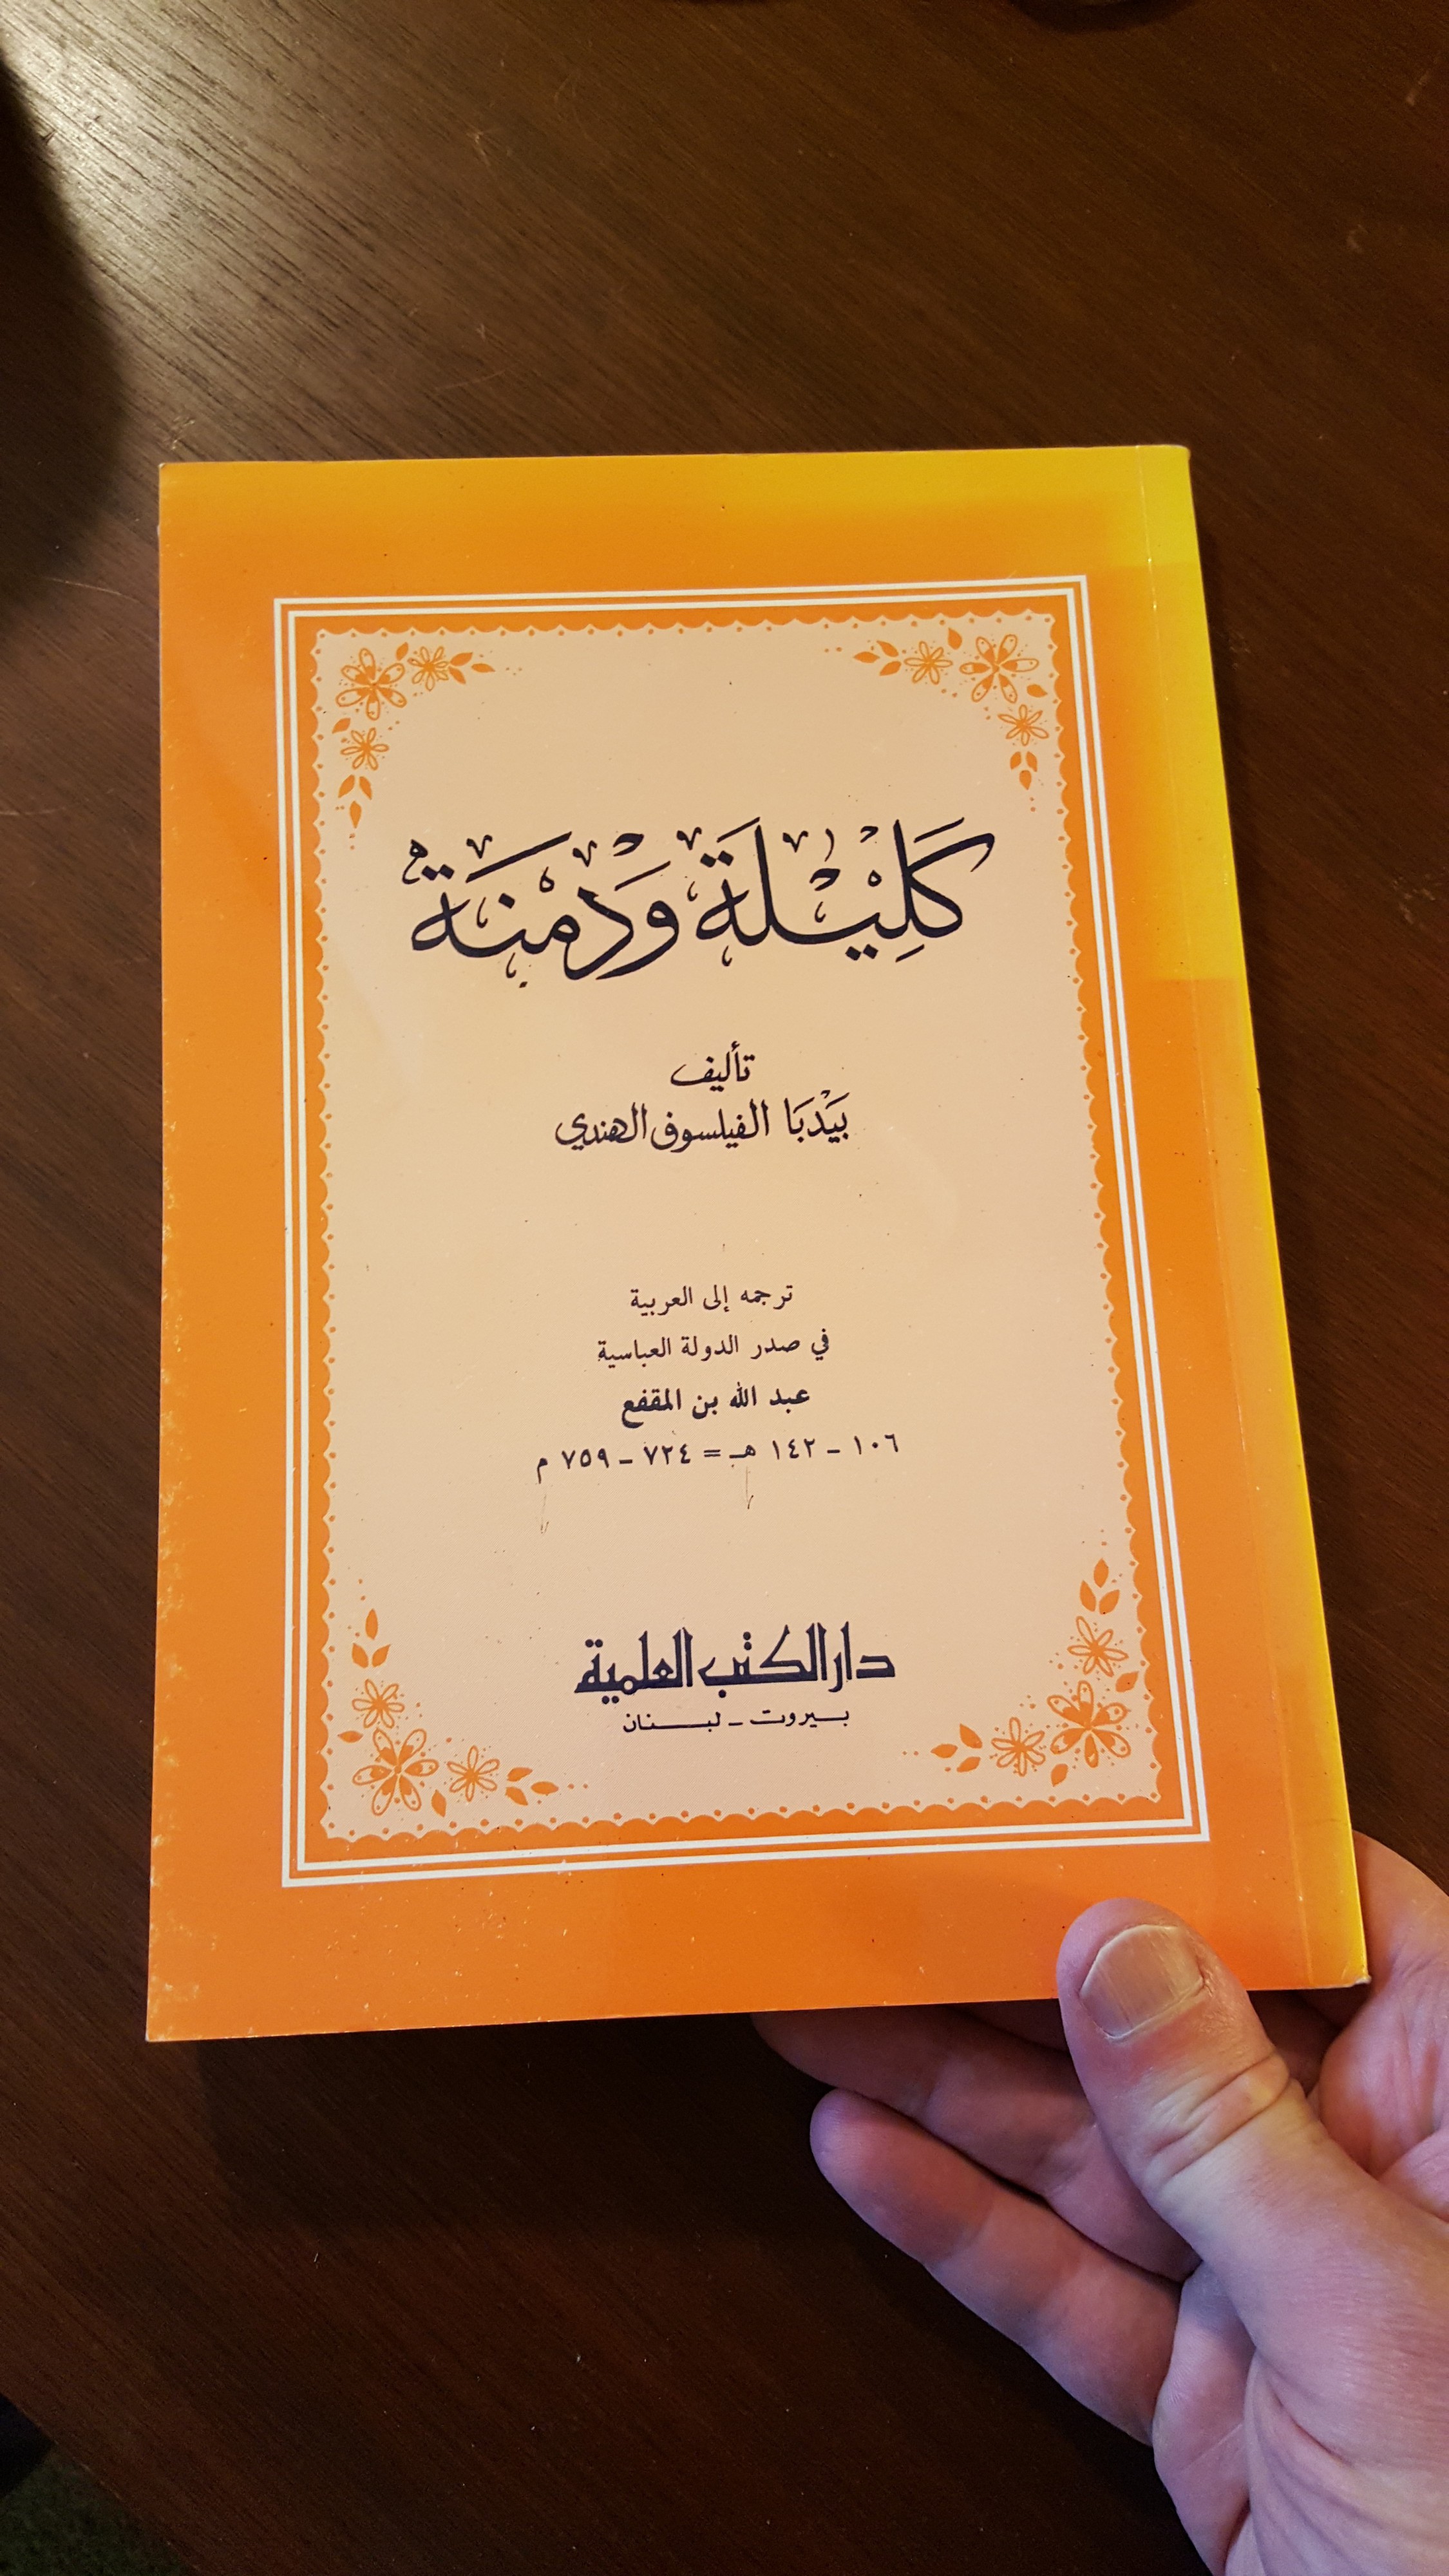 كَلِيْلَة وَدْمنَة
تأليف
بَيْدبَا الفيلسوف الهندي
ترجمه إلى العربية
في صدر الدولة العباسية
عبد الله بن المقفع
١٠٦ - ١٤٢ هـ = ٧٢٤ - ٧٥٩ م
دار الكتب العلمية
بيروت - لبنان